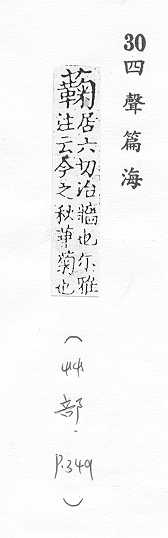 30四聲篇海
蘜
居六切治牆也尔雅
注云今之秋華菊也
(艸部.P.349)